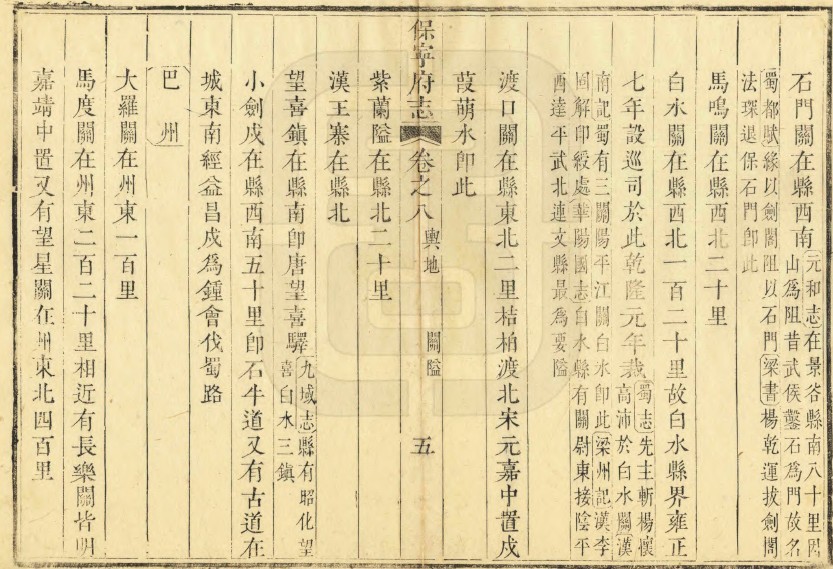 石門關在縣西南元和志在景谷縣南八十里因
山為阻昔武侯鑿石為門故名
蜀都賦緣以劍閣阻以石門梁書楊乾運拔劍閣
法琛退保石門即此
馬鳴關在縣西北二十里
白水關在縣西北一百二十里故白水縣界雍正
七年設巡司於此乾隆元年裁蜀志先主斬楊懷
高沛於白水關漢
南記蜀有三關陽平江關白水即此梁州記漢李
固解印綬處華陽國志白水縣有關尉東接陰平
西達平武北連文縣最為要隘
渡口關在縣東北二里桔柏渡北宋元嘉中置戍
葭萌水即此
紫蘭隘在縣北二十里
漢王寨在縣北
保寧府志 卷之八 輿地 關隘 五
望喜鎮在縣南即唐望喜驛九域志縣有昭化望
喜白水三鎮
小劍戍在縣西南五十里即石牛道又有古道在
城東南經益昌戍為鍾會伐蜀路
巴州
大羅關在州東一百里
馬度關在州東二百二十里相近有長樂關皆明
嘉靖中置又有望星關在州東北四百里